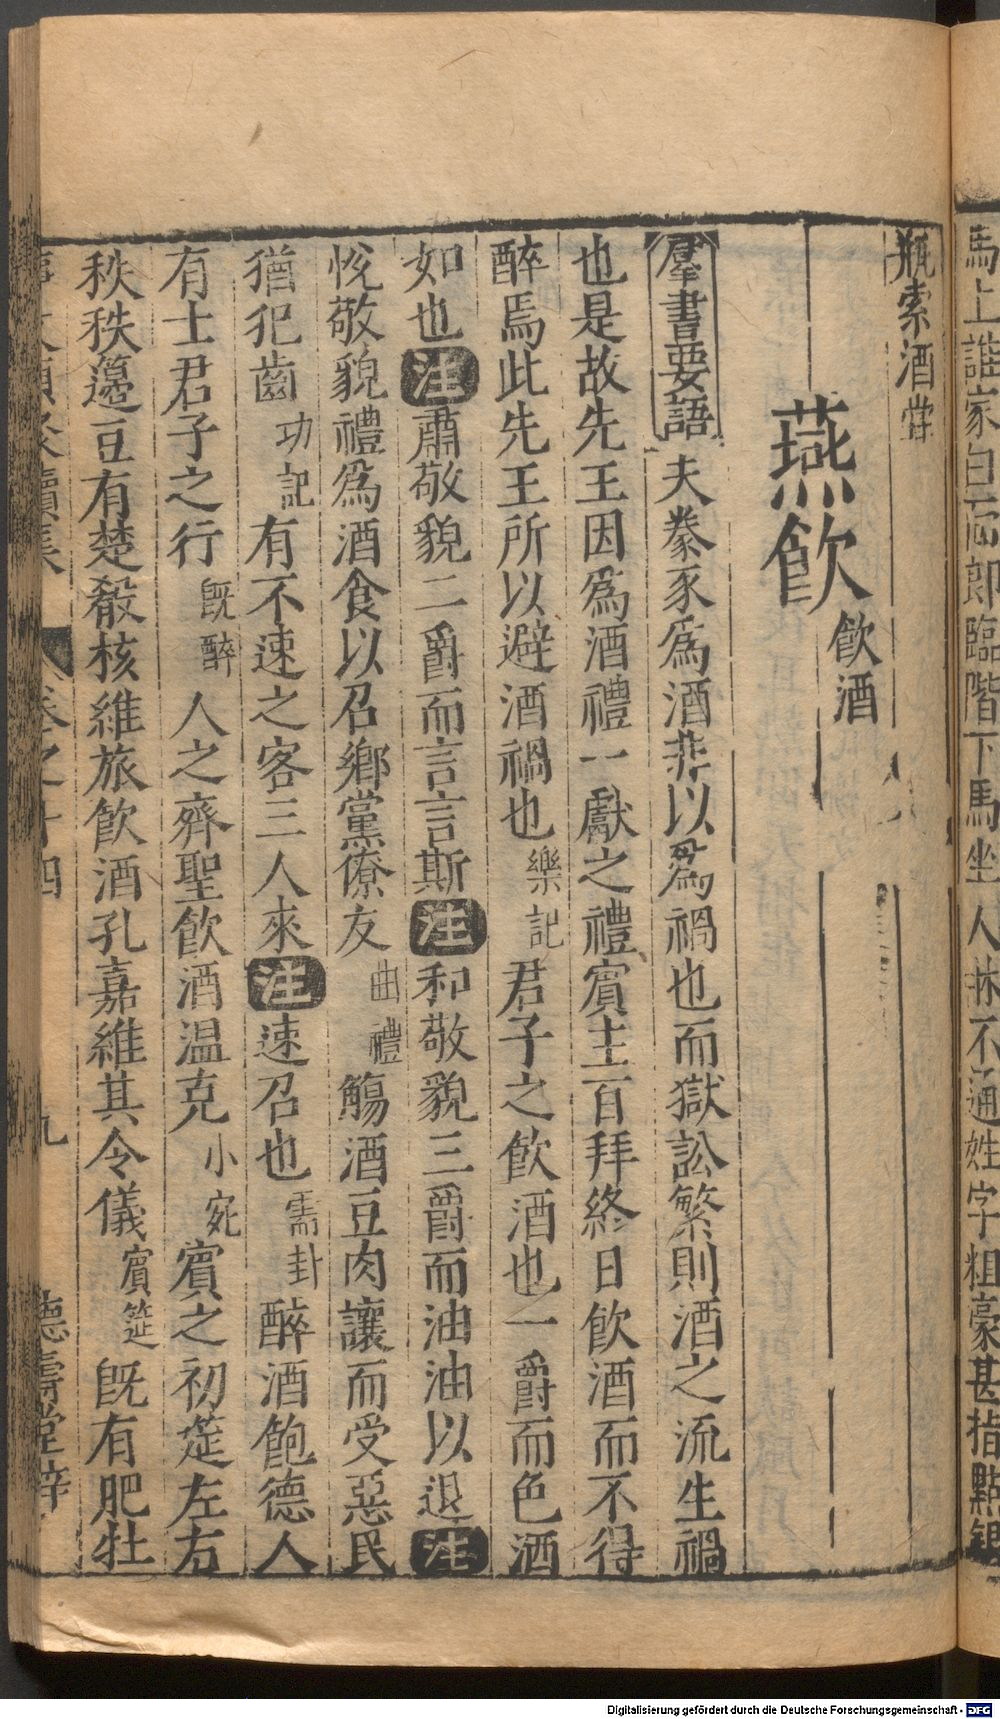 馬上誰家白面郎臨階下馬坐人牀不通姓字粗豪甚指點銀
瓶索酒嘗
燕飲 飲酒
羣書要語 夫豢豕爲酒非以爲禍也而獄訟繁則酒之流生禍
也是故先王因爲酒禮一獻之禮賓主百拜終日飲酒而不得
醉焉此先王所以避酒禍也 樂記 君子之飲酒也一爵而色酒
如也 注 肅敬貌二爵而言言斯 注 和敬貌三爵而油油以退 注
悅敬貌禮爲酒食以召鄉黨僚友 曲禮 觴酒豆肉讓而受惡民
猶犯齒 功記 有不速之客三人來 注 速召也 需卦 醉酒飽德人
有士君子之行 旣醉 人之齊聖飲酒温克 小宛 賓之初筵左右
秩秩籩豆有楚殽核維旅飲酒孔嘉維其令儀 賓筵 旣有肥牡
事文類聚續集 卷之十四 九 德壽堂梓
Digitalisierung gefördert durch die Deutsche Forschungsgemeinschaft - DFG